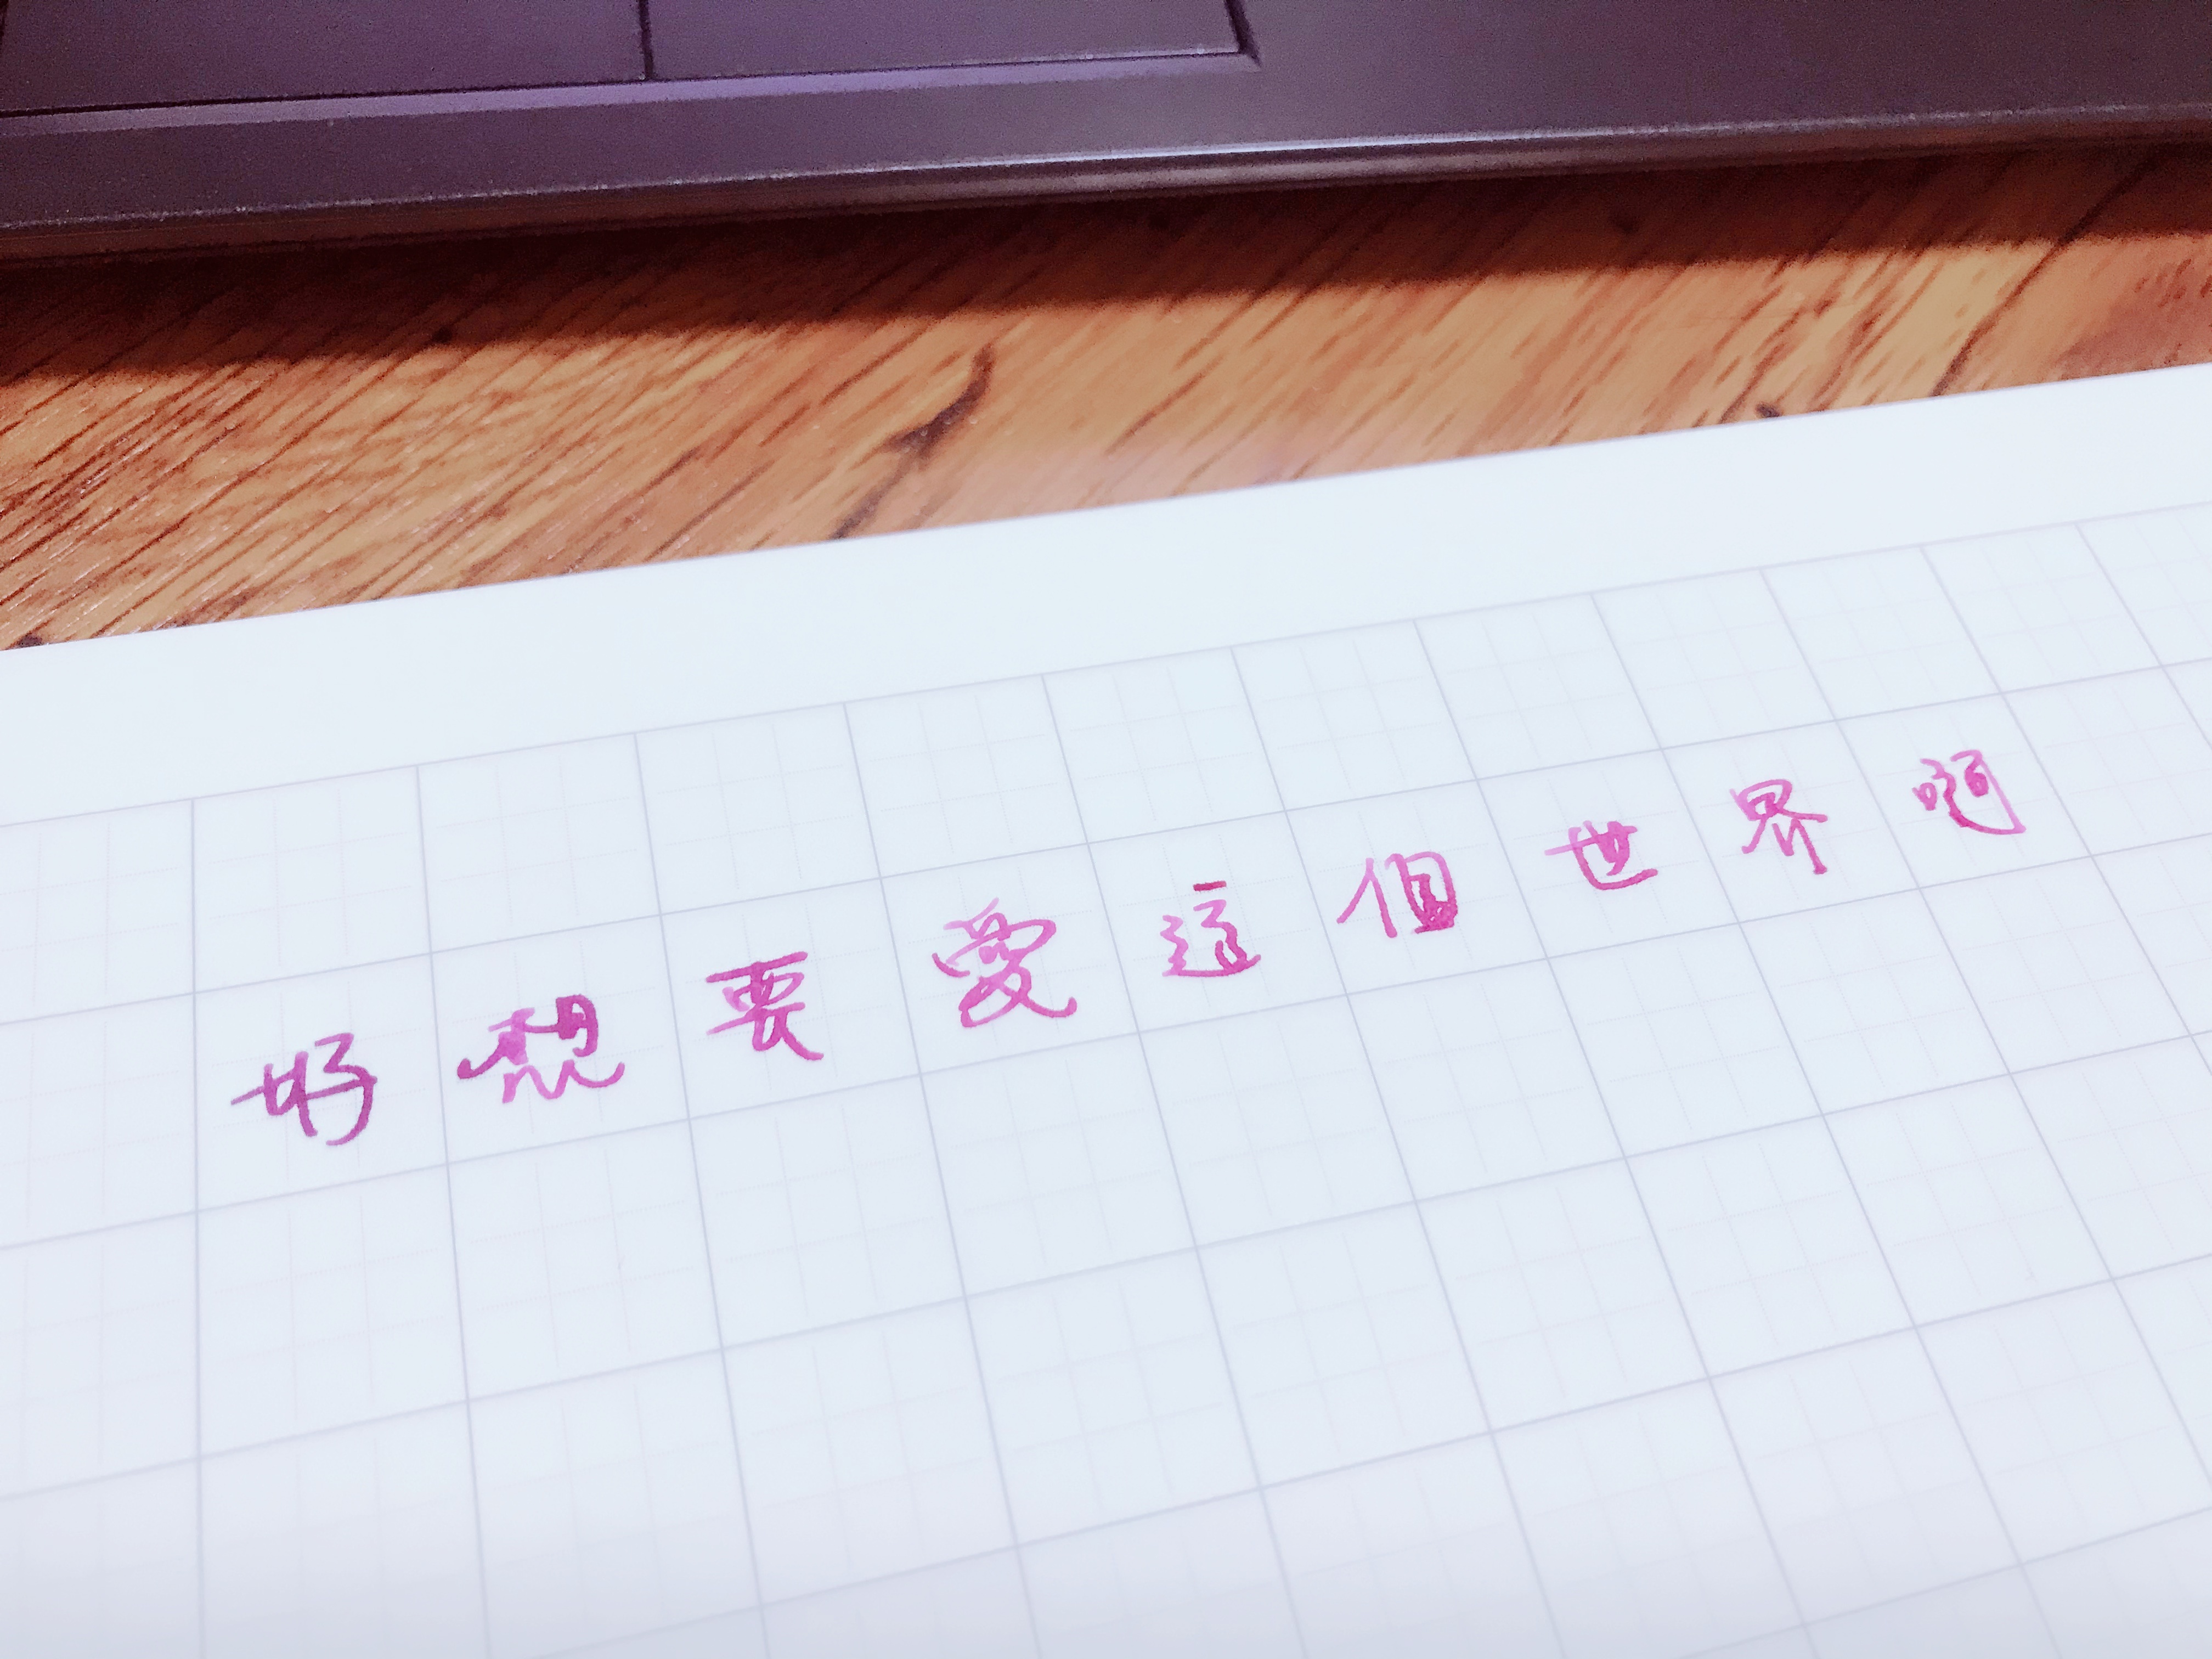 好想要愛這個世界啊